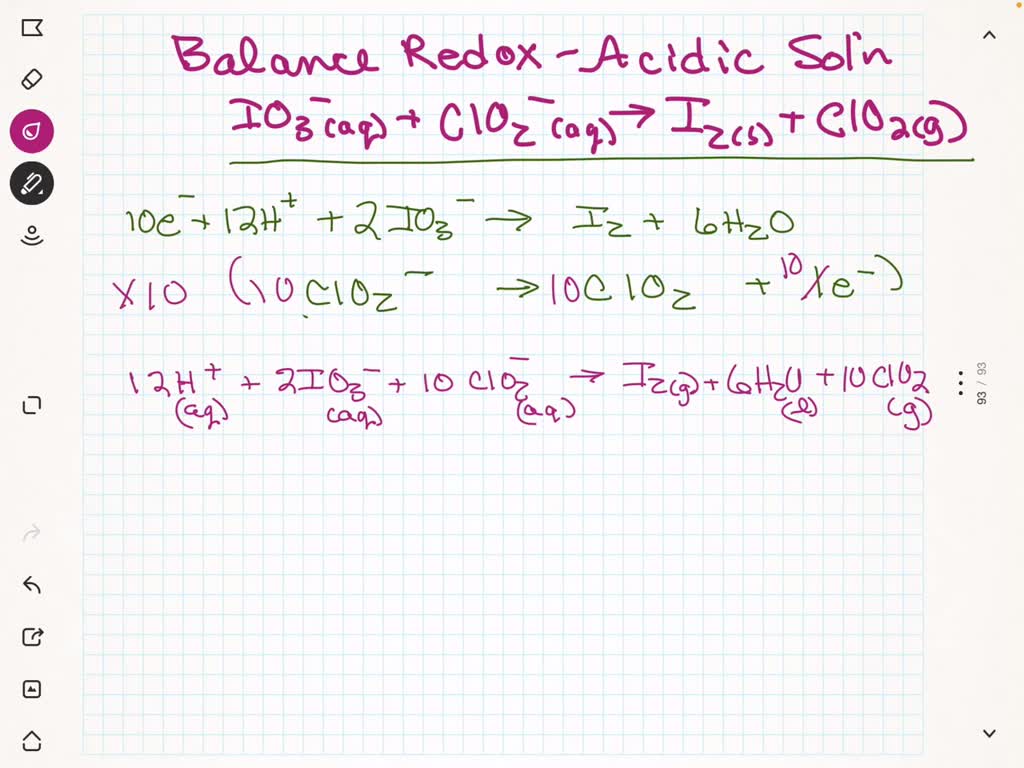 Balance Redox - Acidic Sol'n
IO₃⁻(aq) + ClO₂⁻(aq) → I₂(s) + ClO₂(g)
10e⁻ + 12H⁺ + 2IO₃⁻ → I₂ + 6H₂O
x10 (10ClO₂⁻ → 10ClO₂ + 10 1e⁻)
12H⁺(aq) + 2IO₃⁻(aq) + 10ClO₂⁻(aq) → I₂(g) + 6H₂O(l) + 10ClO₂(g)
93 / 93